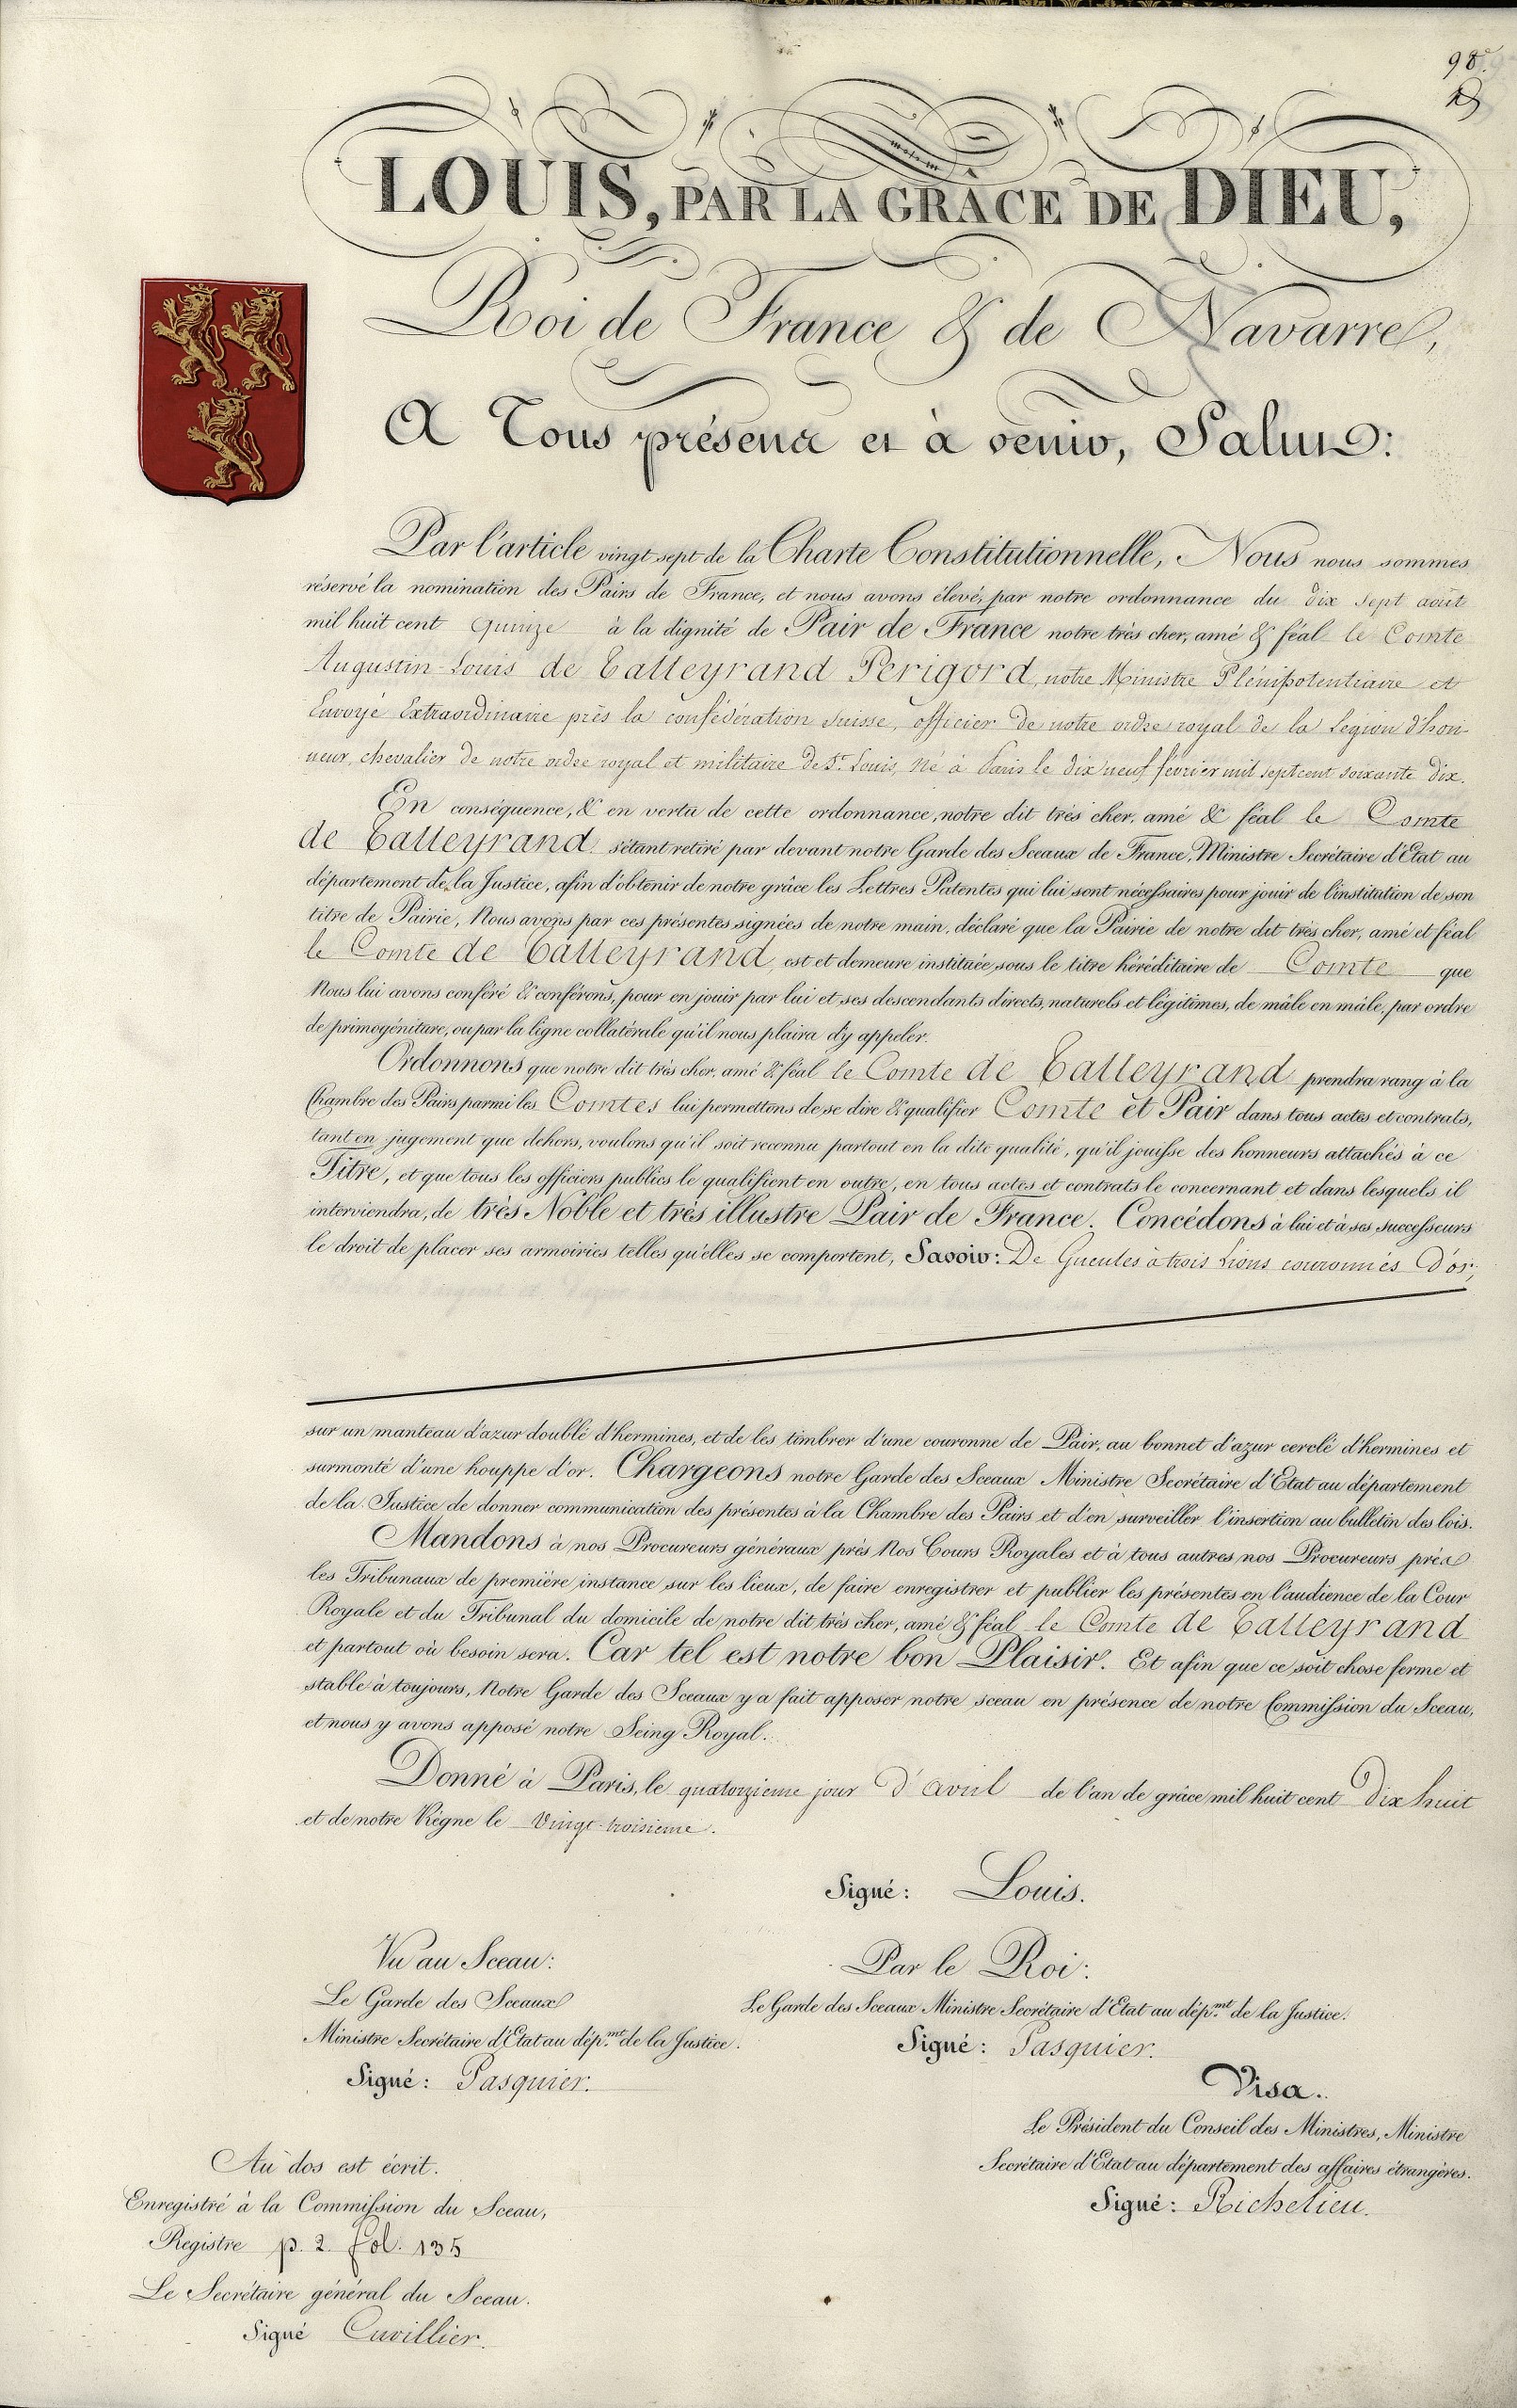 98.
LOUIS, PAR LA GRÂCE DE DIEU,
Roi de France & de Navarre,
A Tous présens et à venir, Salut:
Par l'article vingt sept de la Charte Constitutionnelle, Nous nous sommes
réservé la nomination des Pairs de France, et nous avons élevé, par notre ordonnance du dix sept août
mil huit cent quinze à la dignité de Pair de France notre très cher, amé & féal le Comte
Augustin-Louis de Talleyrand Perigord, notre Ministre Plénipotentiaire et
Envoyé Extraordinaire près la confédération Suisse, officier de notre ordre royal de la Legion d'hon-
neur, chevalier de notre ordre royal et militaire de St. Louis, né à Paris le dix neuf février mil sept cent soixante dix.
En conséquence, & en vertu de cette ordonnance, notre dit très cher, amé & féal le Comte
de Talleyrand s'étant retiré par devant notre Garde des Sceaux de France, Ministre Secrétaire d'Etat au
département de la Justice, afin d'obtenir de notre grâce les Lettres Patentes qui lui sont nécessaires pour jouir de l'institution de son
titre de Pairie, Nous avons par ces présentes signées de notre main, déclaré que la Pairie de notre dit très cher, amé et féal
le Comte de Talleyrand est et demeure instituée sous le titre héréditaire de Comte que
Nous lui avons conféré & conférons, pour en jouir par lui et ses descendants directs, naturels et légitimes, de mâle en mâle, par ordre
de primogéniture, ou par la ligne collatérale qu'il nous plaira d'y appeler.
Ordonnons que notre dit très cher, amé & féal le Comte de Talleyrand prendra rang à la
Chambre des Pairs parmi les Comtes lui permettons de se dire & qualifier Comte et Pair dans tous actes et contrats,
tant en jugement que dehors, voulons qu'il soit reconnu partout en la dite qualité, qu'il jouisse des honneurs attachés à ce
Titre, et que tous les officiers publics le qualifient en outre, en tous actes et contrats le concernant et dans lesquels il
interviendra, de très Noble et très illustre Pair de France. Concédons à lui et à ses successeurs
le droit de placer ses armoiries telles qu'elles se comportent, Savoir: De Gueules à trois Lions couronnés d'or;
sur un manteau d'azur doublé d'hermines, et de les timbrer d'une couronne de Pair, au bonnet d'azur cerclé d'hermines et
surmonté d'une houppe d'or. Chargeons notre Garde des Sceaux Ministre Secrétaire d'Etat au département
de la Justice de donner communication des présentes à la Chambre des Pairs et d'en surveiller l'insertion au bulletin des lois.
Mandons à nos Procureurs généraux près Nos Cours Royales et à tous autres nos Procureurs près
les Tribunaux de première instance sur les lieux, de faire enregistrer et publier les présentes en l'audience de la Cour
Royale et du Tribunal du domicile de notre dit très cher, amé & féal le Comte de Talleyrand
et partout où besoin sera. Car tel est notre bon Plaisir. Et afin que ce soit chose ferme et
stable à toujours, Notre Garde des Sceaux y a fait apposer notre sceau en présence de notre Commission du Sceau,
et nous y avons apposé notre Seing Royal.
Donné à Paris, le quatorzieme jour d'avril de l'an de grâce mil huit cent dix huit
et de notre Règne le vingt-troisieme.
Signé: Louis.
Vu au Sceau:
Le Garde des Sceaux
Ministre Secrétaire d'Etat au dép.mt de la Justice.
Signé: Pasquier.
Par le Roi:
Le Garde des Sceaux Ministre Secrétaire d'Etat au dép.mt de la Justice.
Signé: Pasquier.
Visa.
Le Président du Conseil des Ministres, Ministre
Secrétaire d'Etat au département des affaires étrangères.
Signé: Richelieu.
Au dos est écrit.
Enregistré à la Commission du Sceau,
Registre p. 2. fol. 135
Le Secrétaire général du Sceau.
Signé Cuvillier.